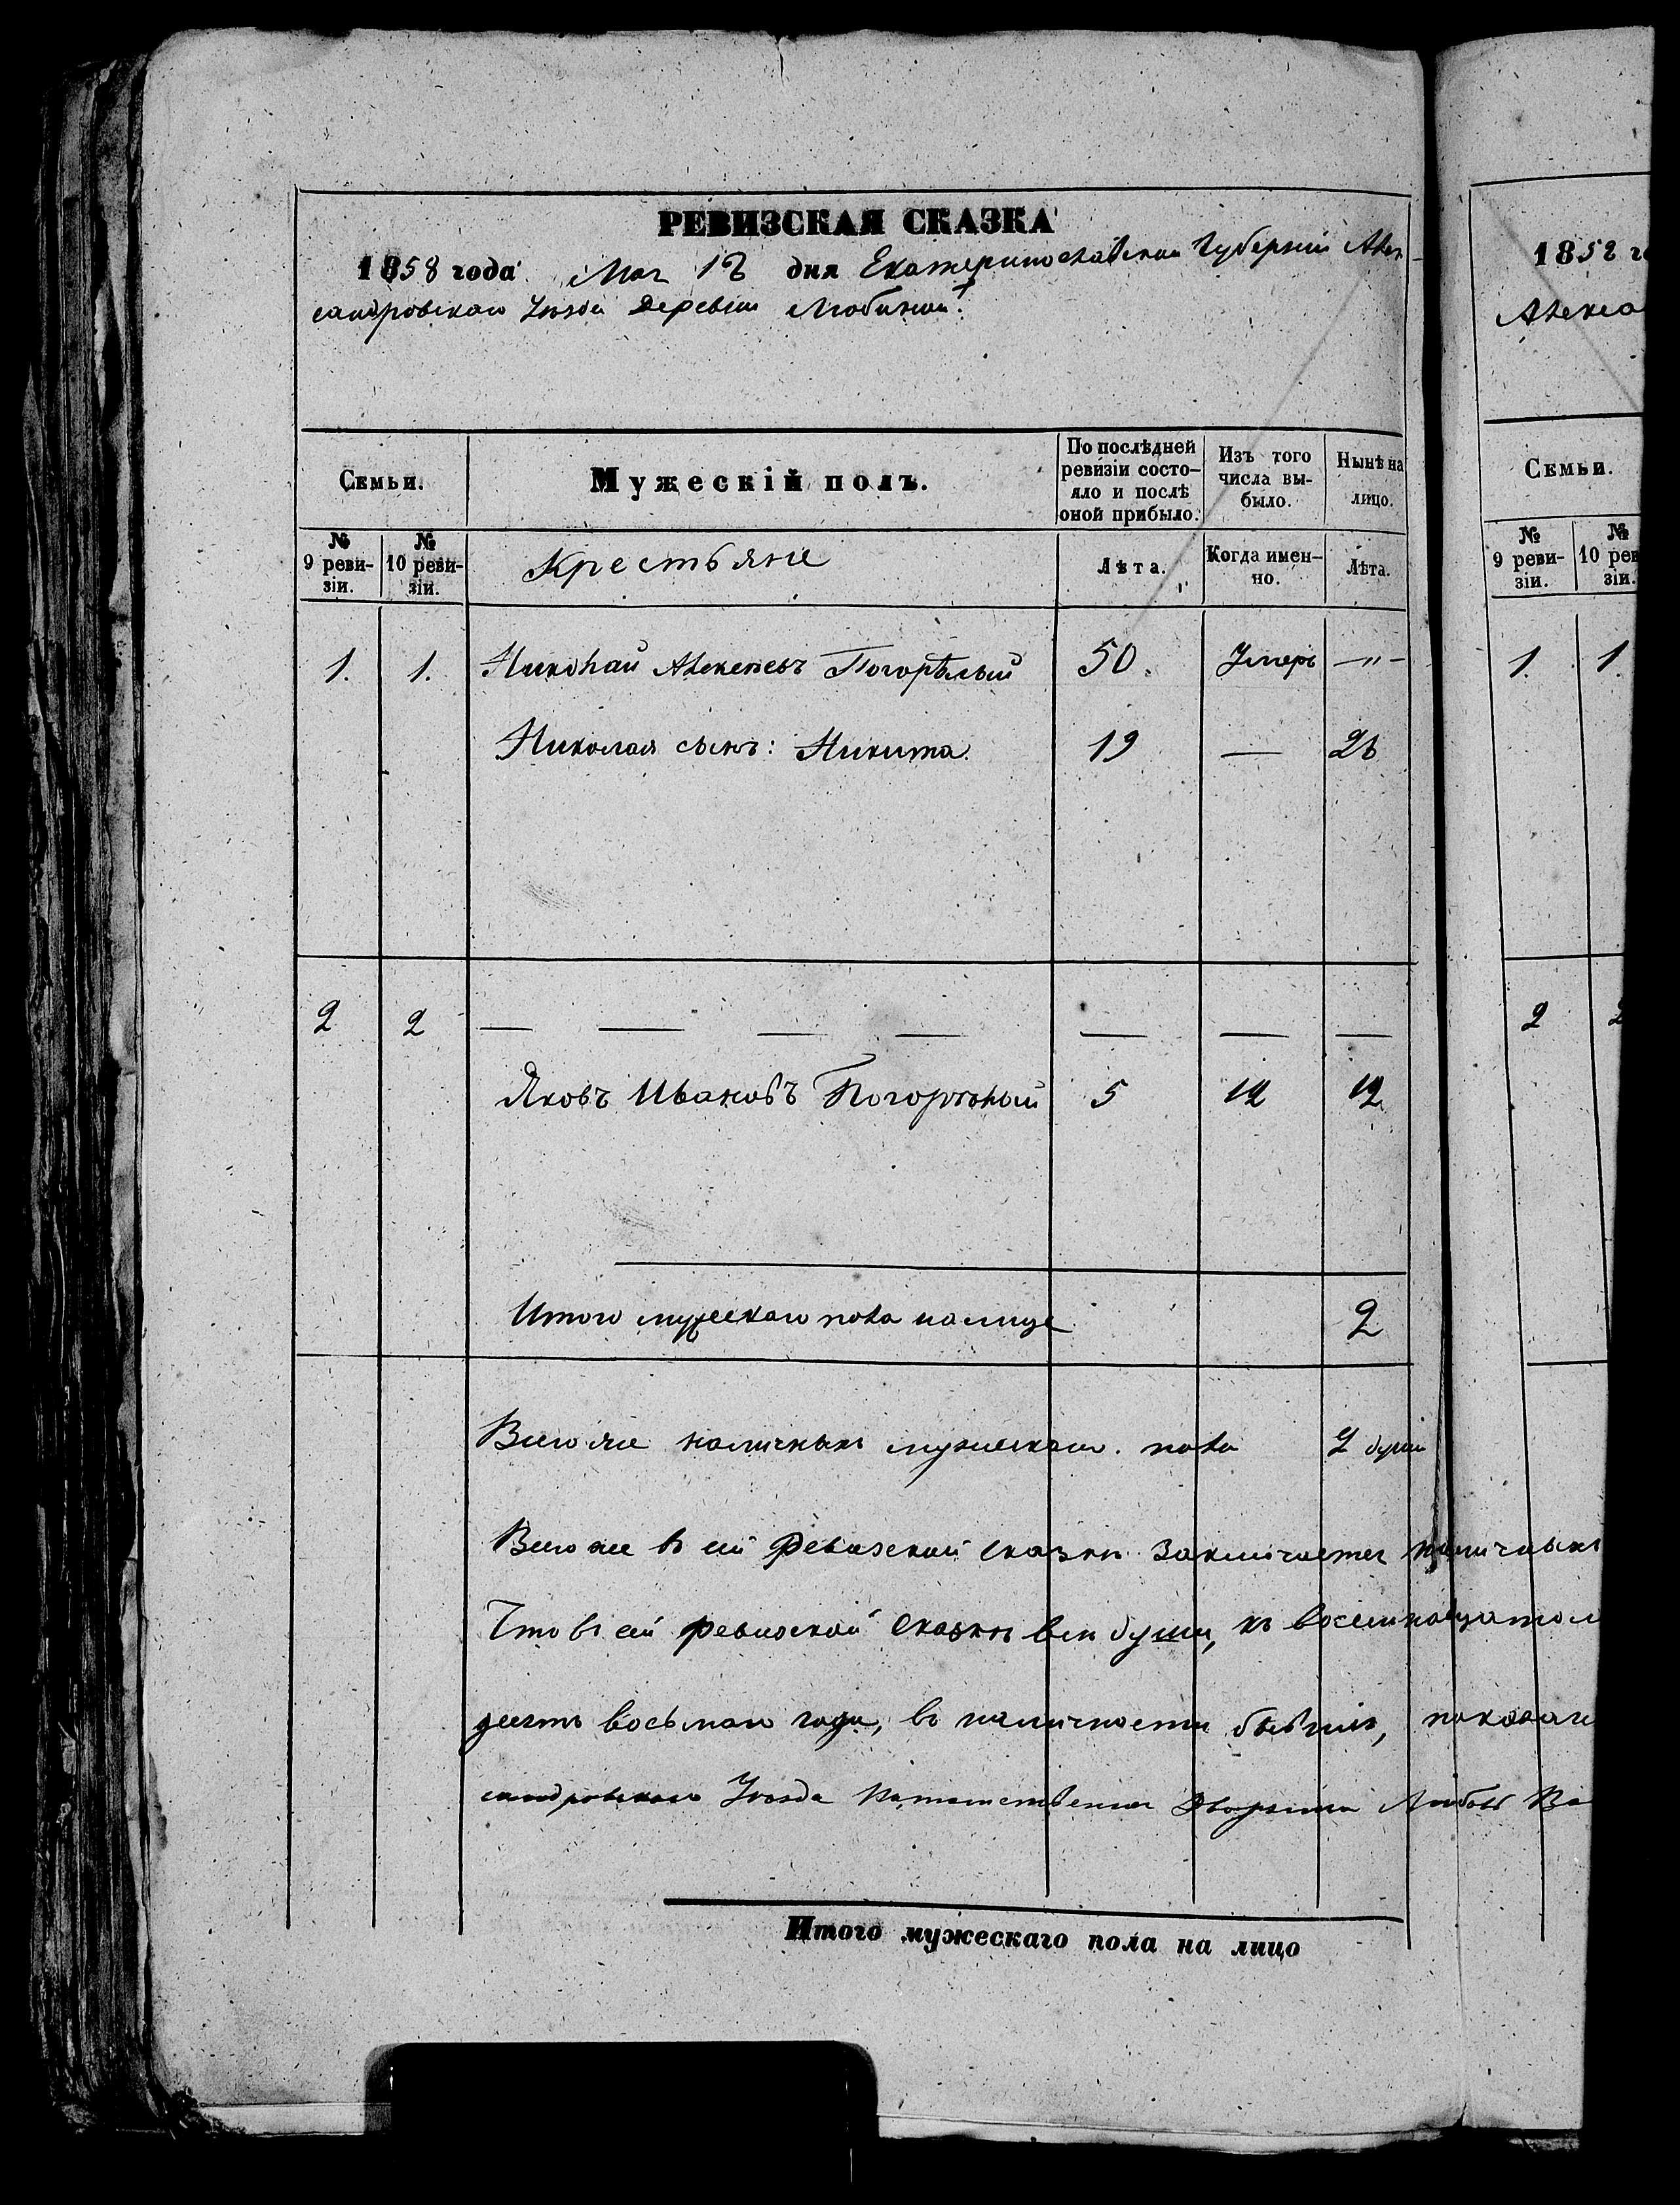 РЕВИЗСКАЯ СКАЗКА
1858 года Мая 12 дня Екатеринославской Губерніи Алек-
сандровскаго Уѣзда Деревни Любиной
Семьи.
Мужескій полъ.
По послѣдней ревизіи состо-яло и послѣ оной прибыло.
Изъ того числа вы-было.
Нынѣ на лицо.
№ 9 реви-зіи.
№ 10 реви-зіи.
Крестьяне
Лѣта.
Когда имен-но.
Лѣта.
1. 1. Николай Алексѣевъ Погорѣлый 50. Умеръ —"—
Николая сынъ: Никита. 19 — 26
2 2 — — — — — — —
Яковъ Ивановъ Погорѣлый 5 12 12
Итого мужескаго пола налице 2
Всего же наличныхъ мужескаго пола 2 души
Всего же въ сей Ревизской сказкѣ заключается наличныхъ
Что въ сей ревизской сказкѣ всѣ души, къ восемнадцатом
десятъ восьмаго года, въ наличности бывшія, показан
сандровскаго Уѣзда Потомственная Дворянка Любовь Ва
Итого мужескаго пола на лицо
1858 го
Алекса
Семьи.
№ 9 реви-зіи.
№ 10 рев зіи.
1. 1.
2 2